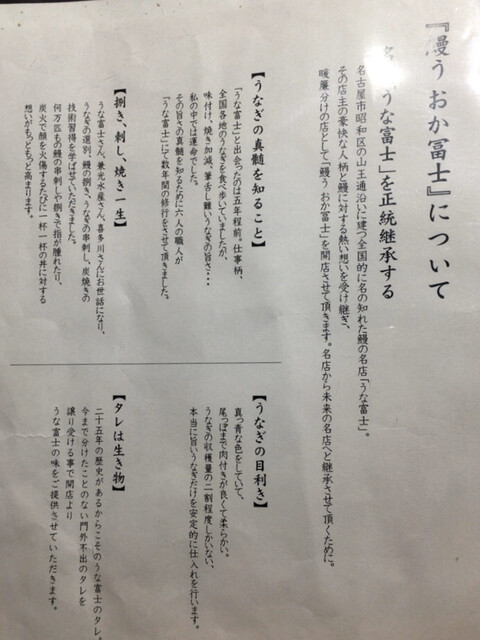 『鰻う おか冨士』について
う な冨士」を正統継承する
名古屋市昭和区の山王通沿いに建つ全国的に名の知れた鰻の名店「うな冨士」。
その店主の豪快な人柄と鰻に対する熱い想いを受け継ぎ、
暖簾分けの店として「鰻う おか冨士」を開店させて頂きます。名店から未来の名店へと継承させて頂くために。
【うなぎの真髄を知ること】
「うな冨士」と出会ったのは五年程前。仕事柄、
全国各地のうなぎを食べ歩いていましたが、
味付け。焼き加減。筆舌し難いうなぎの旨さ・・・
私の中では運命でした。
その旨さの真髄を知るために六人の職人が
「うな冨士」にて数年間の修行をさせて頂きました。
【捌き、刺し、焼き一生】
うな冨士さん、兼光水産さん、喜多川さんにお世話になり、
うなぎの選別、鰻の捌き、うなぎの串刺し、炭焼きの
技術習得を学ばせていただきました。
何万匹もの鰻の串刺しや捌きで指が腫れたり、
炭火で顔を火傷するたびに一杯一杯の丼に対する
想いがもっともっと高まっていきました。
【うなぎの目利き】
真っ青な色をしていて、
尾っぽまで肉付きが良くて柔らかい。
うなぎの収穫量の二割程度しかいない、
本当に旨いうなぎだけを安定的に仕入れを行います。
【タレは生き物】
二十五年の歴史があるからこそのうな冨士のタレ。
今まで分けたことのない門外不出のタレを
譲り受ける事で開店より
うな冨士の味をご提供させていただきます。